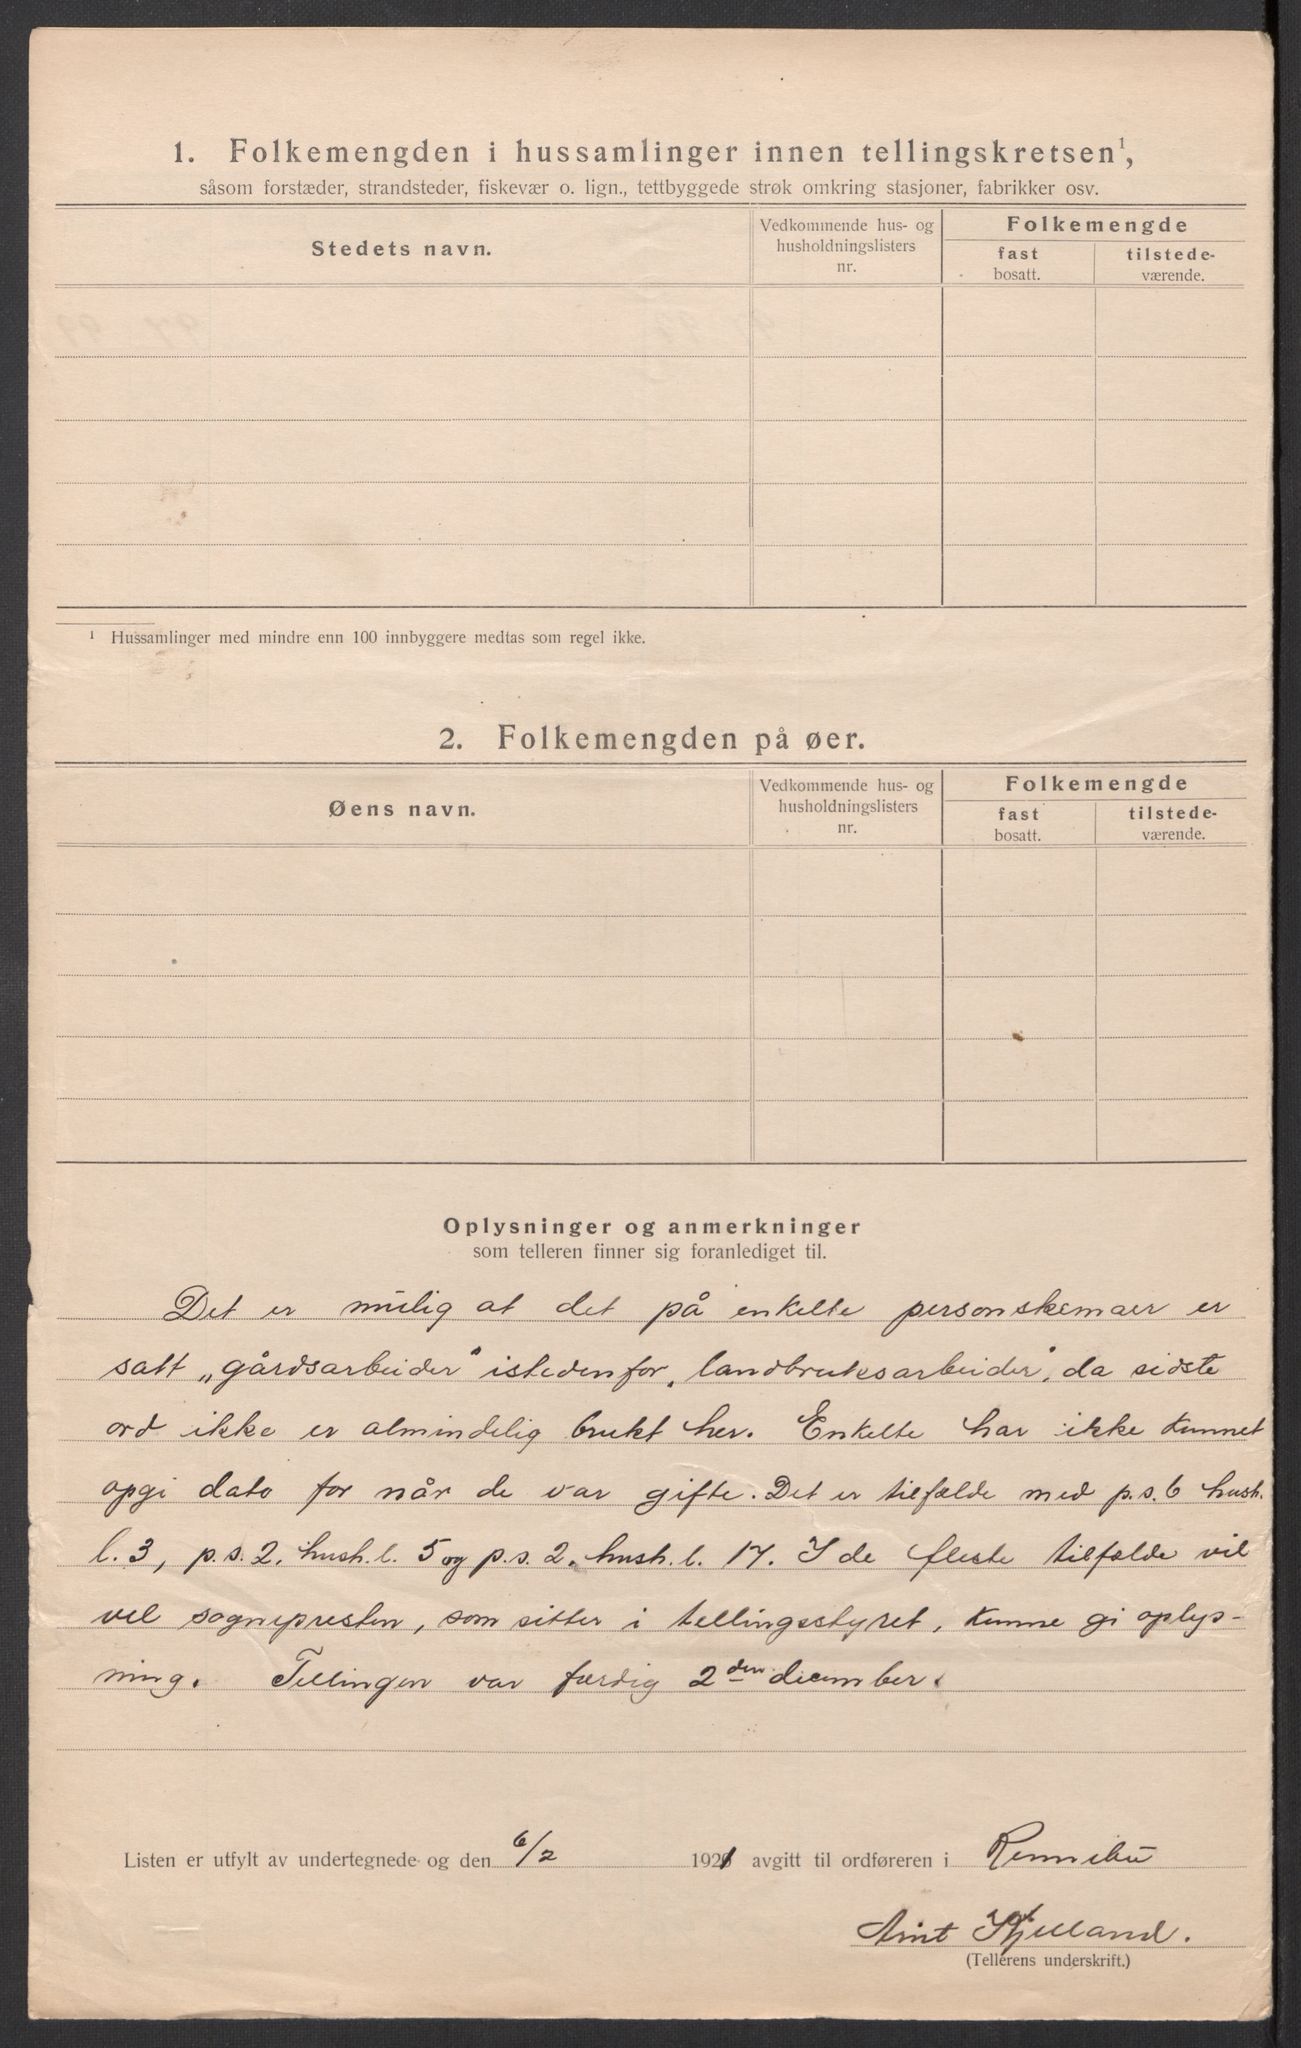 1. Folkemengden i hussamlinger innen tellingskretsen¹,
såsom forstæder, strandsteder, fiskevær o. lign., tettbyggede strøk omkring stasjoner, fabrikker osv.
Stedets navn.
Vedkommende hus- og
husholdningslisters
nr.
Folkemengde
fast
bosatt.
tilstede-
værende.
¹ Hussamlinger med mindre enn 100 innbyggere medtas som regel ikke.
2. Folkemengden på øer.
Øens navn.
Vedkommende hus- og
husholdningslisters
nr.
Folkemengde
fast
bosatt.
tilstede-
værende.
Oplysninger og anmerkninger
som telleren finner sig foranlediget til.
Det er mulig at det på enkelte personskemaer er
satt „gårdsarbeider" istedenfor „landbruksarbeider", da sidste
ord ikke er almindelig brukt her. Enkelte har ikke kunnet
opgi dato for når de var gifte. Det er tilfælde med p.s. 6 hush.
l. 3, p.s. 2, hush. l. 5 og p.s. 2, hush. l. 17. I de fleste tilfælde vil
vel sognepresten, som sitter i tellingsstyret, kunne gi oplys-
ning. Tellingen var færdig 2den december.
Listen er utfylt av undertegnede og den 6/2 1921 avgitt til ordføreren i Rennebu
Kjelland.
(Tellerens underskrift.)